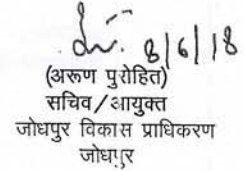 8/6/18
(अरूण पुरोहित)
सचिव/आयुक्त
जोधपुर विकास प्राधिकरण
जोधपुर